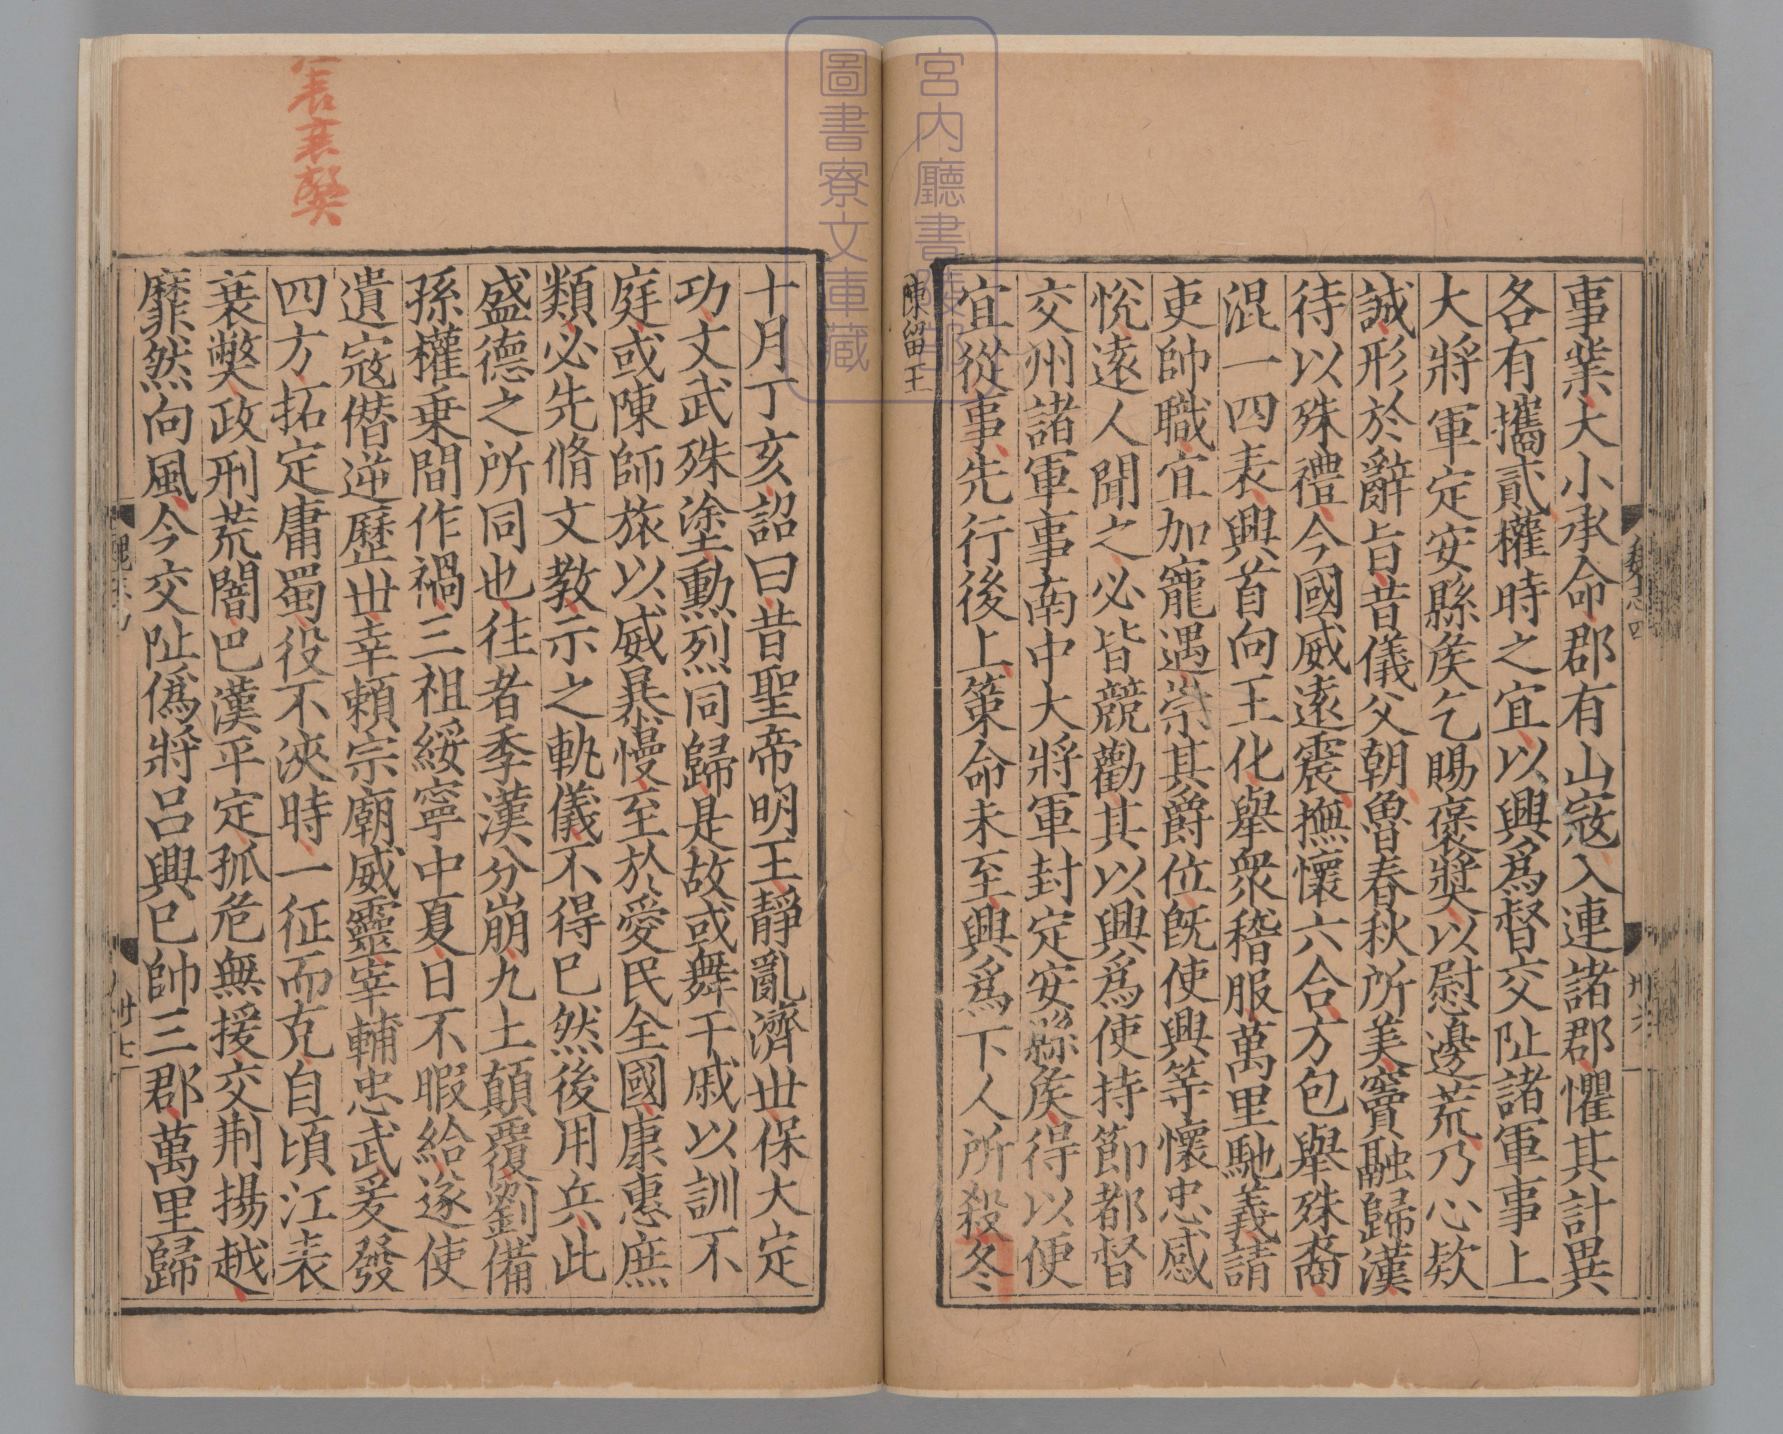 事業大小承命郡有山寇入連諸郡懼其計異
各有攜貳權時之宜以興爲督交阯諸軍事上
大將軍定安縣矦乞賜褒奬以慰邊荒乃心欵
誠形於辭旨昔儀父朝魯春秋所美竇融歸漢
待以殊禮今國威遠震撫懷六合方包舉殊裔
混一四表興首向王化舉衆稽服萬里馳義請
吏帥職宜加寵遇崇其爵位旣使興等懷忠感
悅遠人聞之必皆競勸其以興爲使持節都督
交州諸軍事南中大將軍封定安縣矦得以便
宜從事先行後上策命未至興爲下人所殺冬
陳留王
魏志四
卅六
宮内廳書陵部
圖書寮文庫藏
十月丁亥詔曰昔聖帝明王靜亂濟世保大定
功文武殊塗勳烈同歸是故或舞干戚以訓不
庭或陳師旅以威暴慢至於愛民全國康惠庶
類必先脩文教示之軌儀不得已然後用兵此
盛德之所同也往者季漢分崩九土顛覆劉備
孫權乗間作禍三祖綏寧中夏日不暇給遂使
遺寇僭逆歷世幸賴宗廟威靈宰輔忠武爰發
四方拓定庸蜀役不浹時一征而克自頃江表
衰弊政刑荒闇巴漢平定孤危無援交荆揚越
靡然向風今交阯僞將呂興已帥三郡萬里歸
卅七